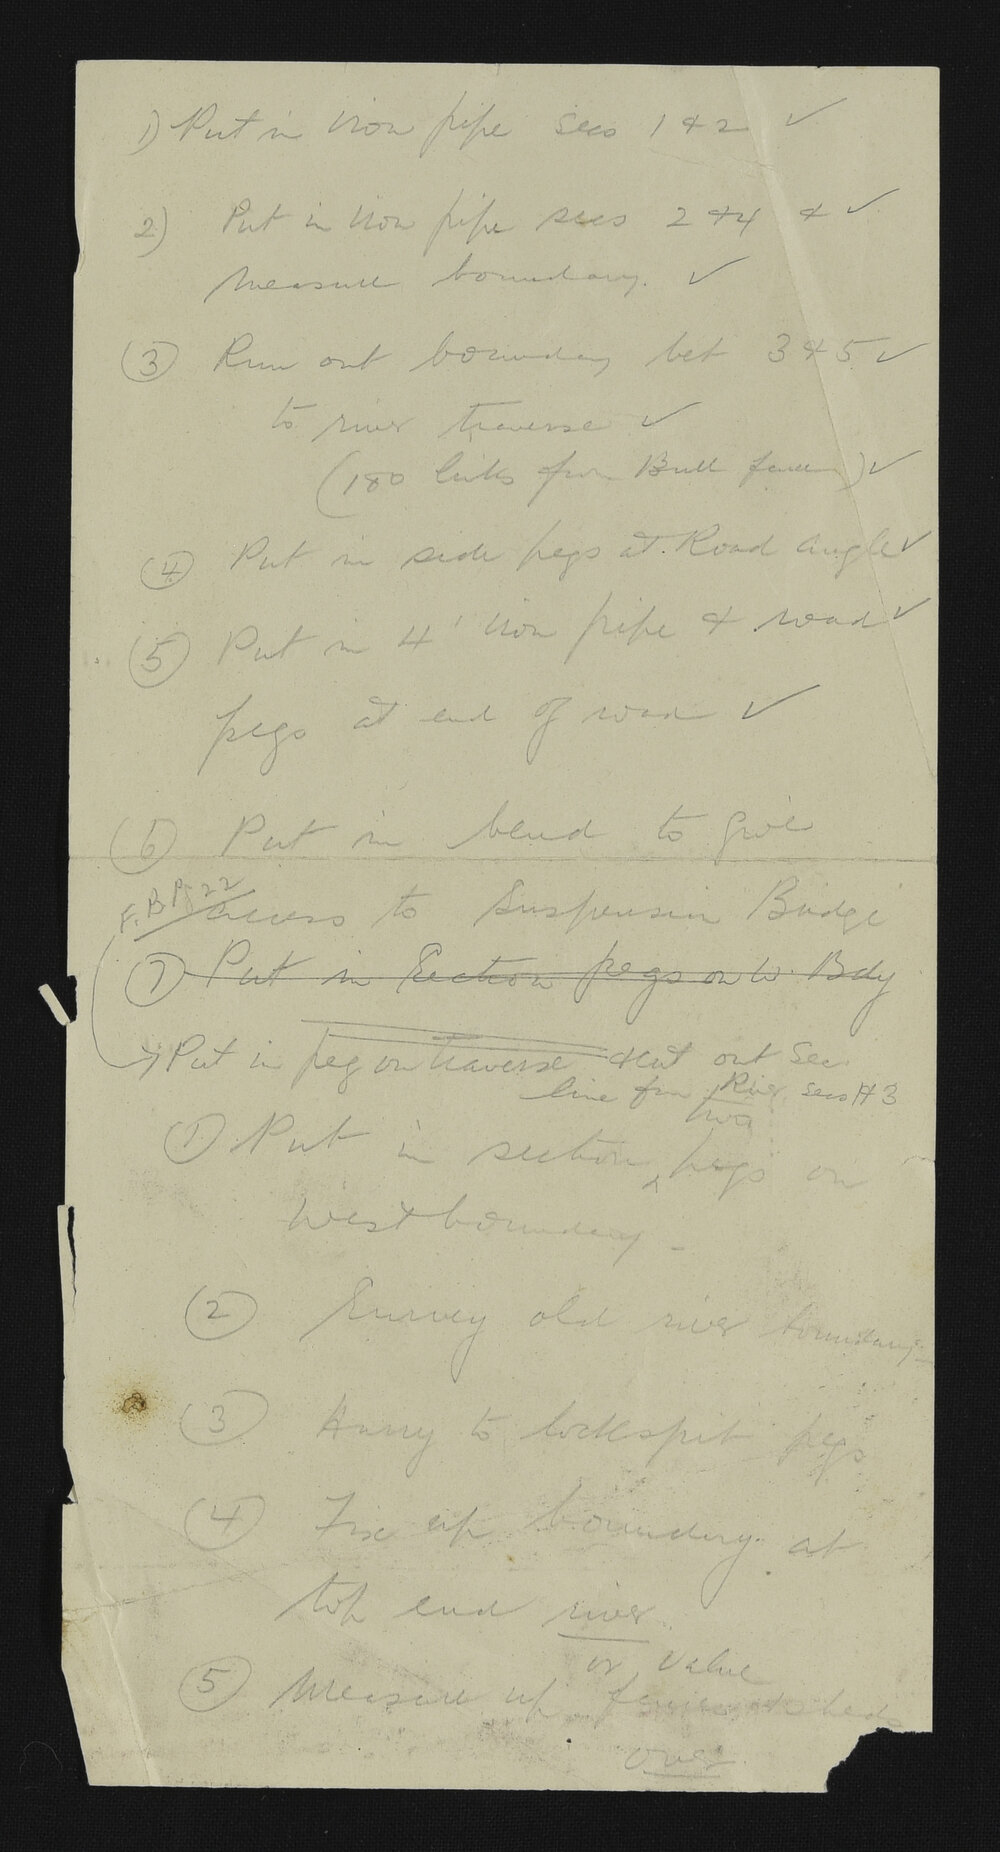 1) Put in iron pipe secs 1 & 2 ✓
2) Put in iron pipe secs 2 & 4 & ✓
measure boundary. ✓
3 Run out boundary bet 3 & 5 ✓
to river traverse ✓
(180 links from Bull ) ✓
4 Put in side pegs at Road angle ✓
5 Put in 4' iron pipe & road ✓
pegs at end of road ✓
6 Put in bend to give
F.B. Pg 22
access to Suspension Bridge
7 Put in Section pegs on W. Bdy
Put in peg on traverse & cut out Sec
line from River secs 1 & 3
1 Put in section two pegs on
West boundary -
2 Survey old river boundary
3 Harry to lockspit pegs
4 Fix up boundary at
top end river
or value
5 Measure up fences & sheds
over